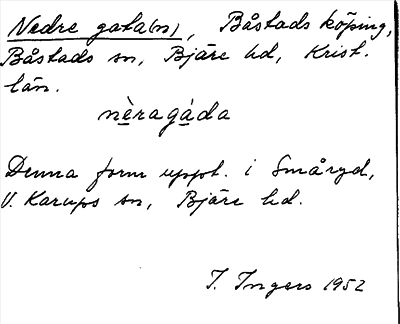 Nedre gata(n), Båstads köping,
Båstads sn, Bjäre hd, Krist.
län.
nèragáda
Denna form uppt. i Småryd,
V. Karups sn, Bjäre hd.
I. Ingers 1952